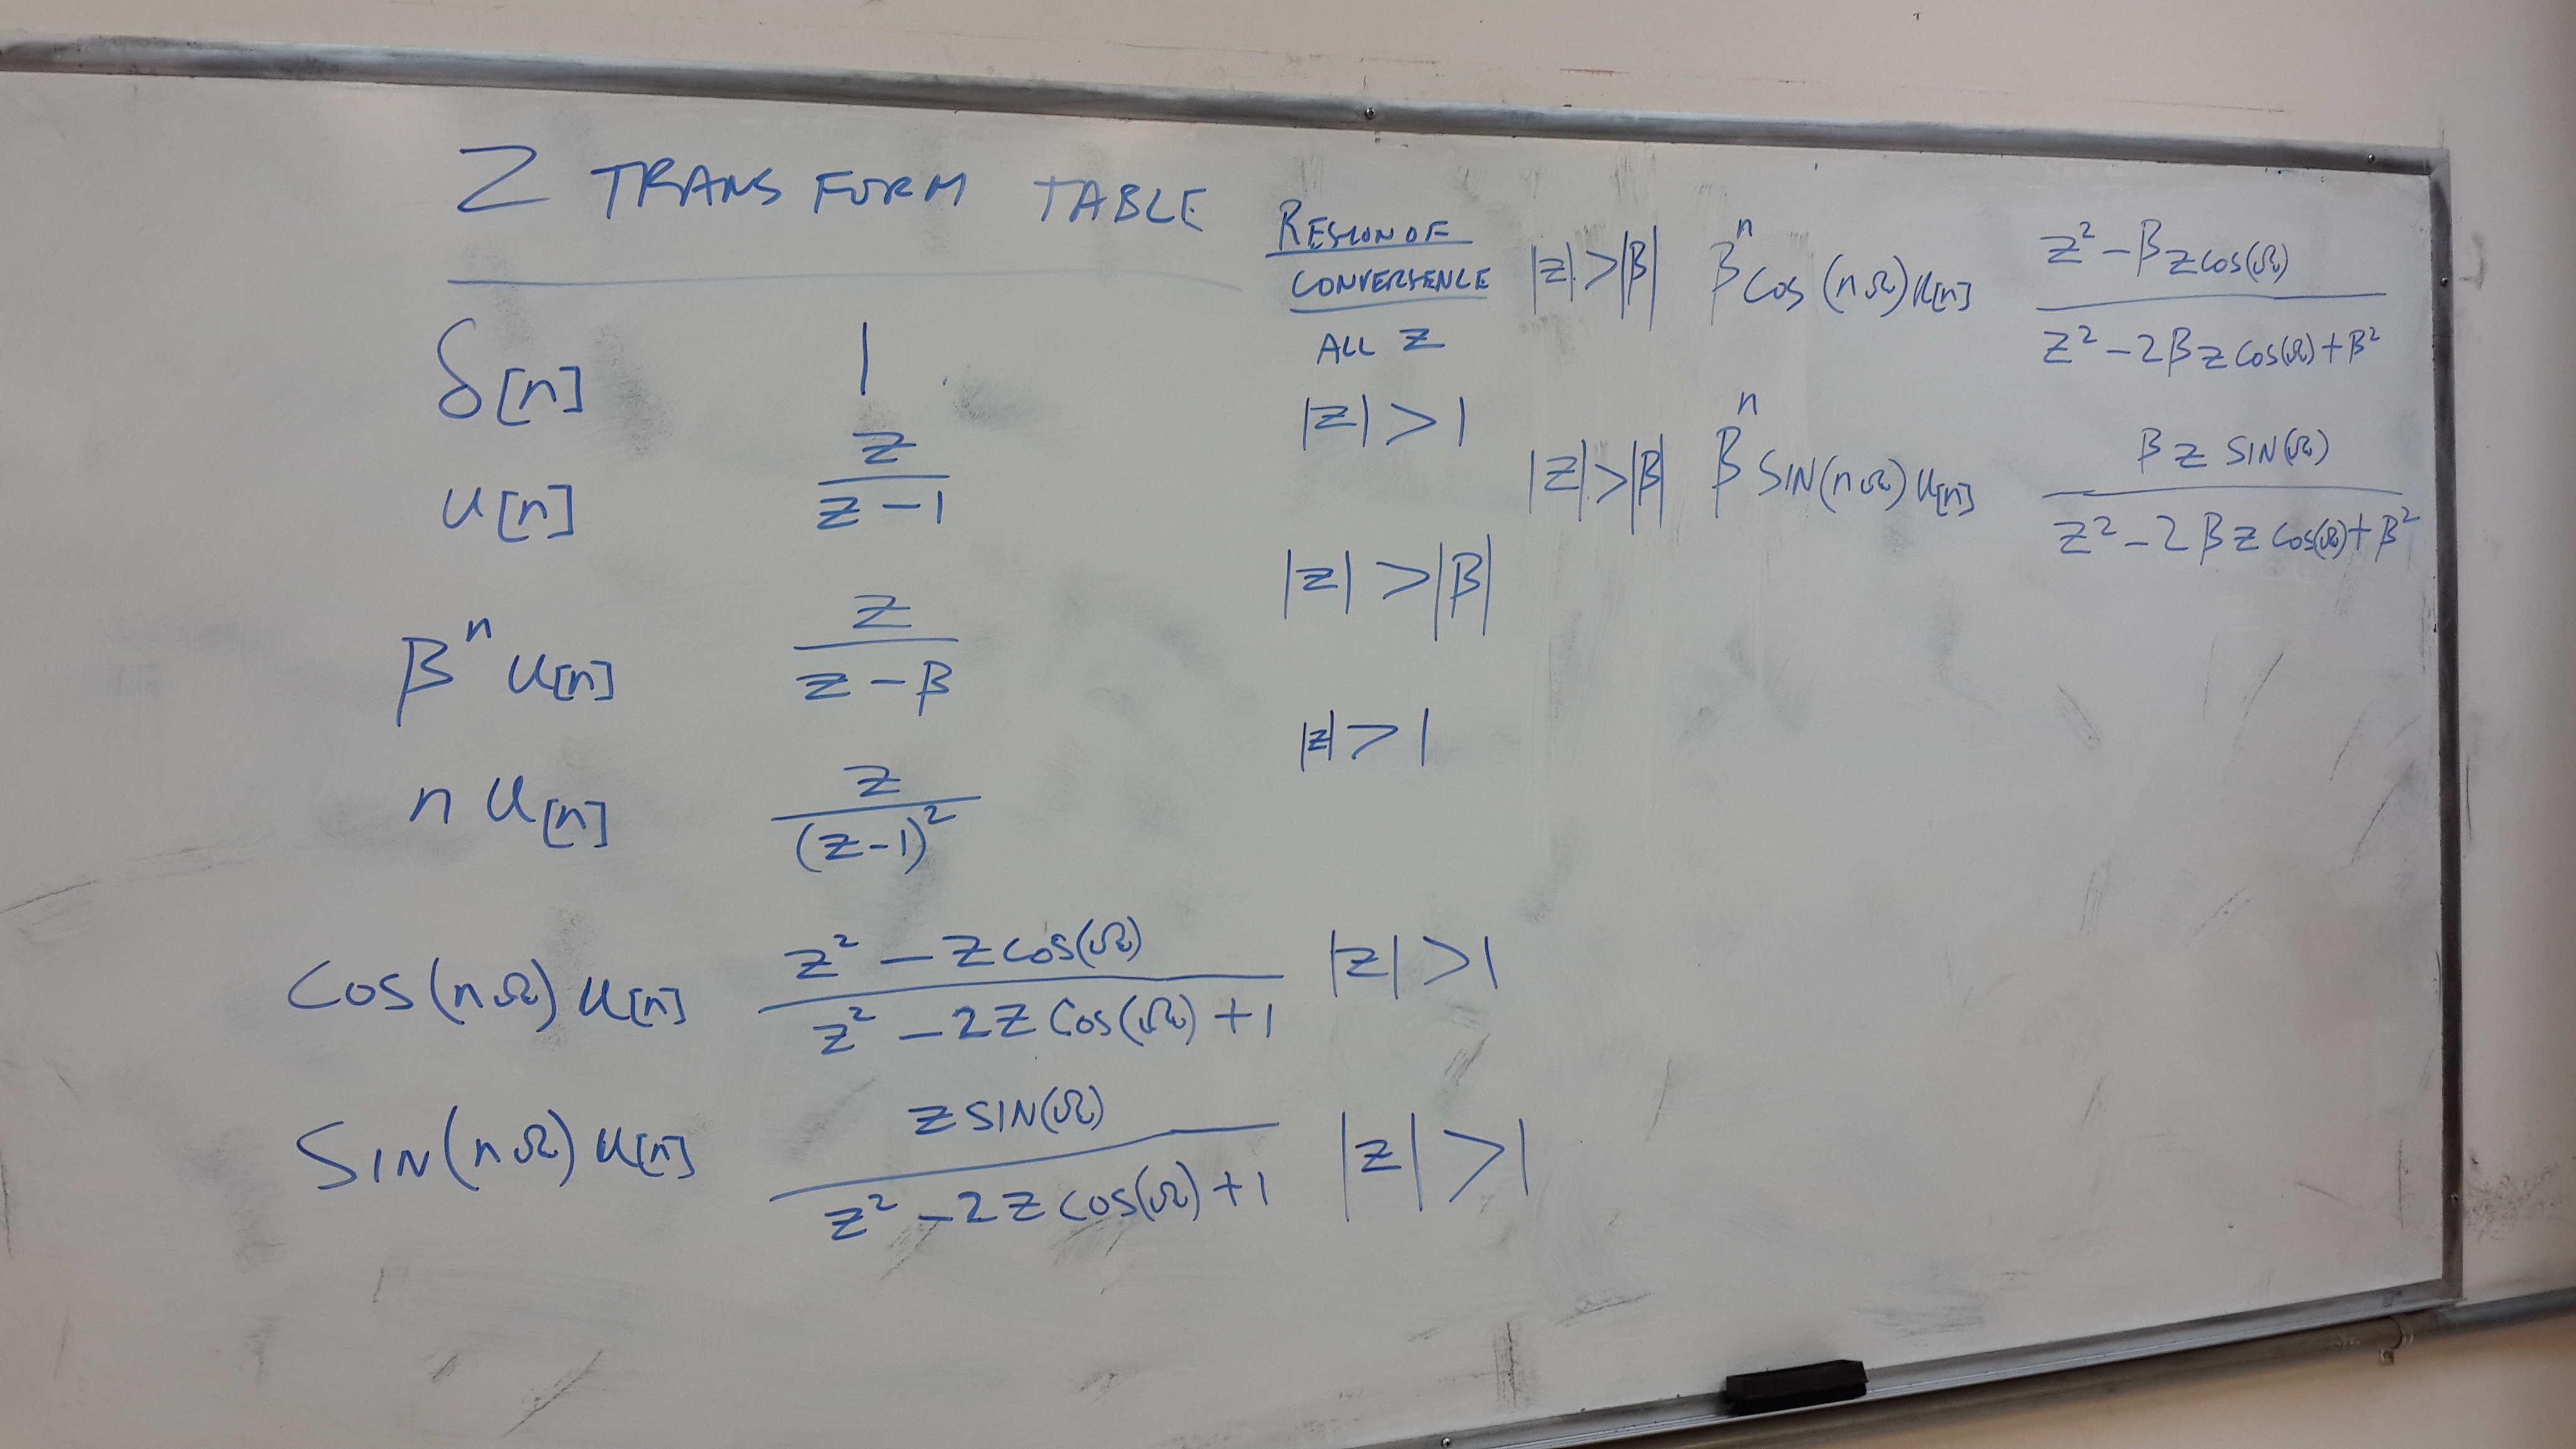 Z TRANSFORM TABLE
REGION OF
CONVERGENCE
δ[n] 1 ALL Z
u[n] z/(z-1) |z| > 1
β^n u[n] z/(z-β) |z| > |β|
n u[n] z/(z-1)^2 |z| > 1
cos(nΩ) u[n] (z^2 - z cos(Ω))/(z^2 - 2z cos(Ω) + 1) |z| > 1
SIN(nΩ) u[n] (z SIN(Ω))/(z^2 - 2z cos(Ω) + 1) |z| > 1
|z| > |β| β^n cos(nΩ) u[n] (z^2 - βz cos(Ω))/(z^2 - 2βz cos(Ω) + β^2)
|z| > |β| β^n SIN(nΩ) u[n] (βz SIN(Ω))/(z^2 - 2βz cos(Ω) + β^2)